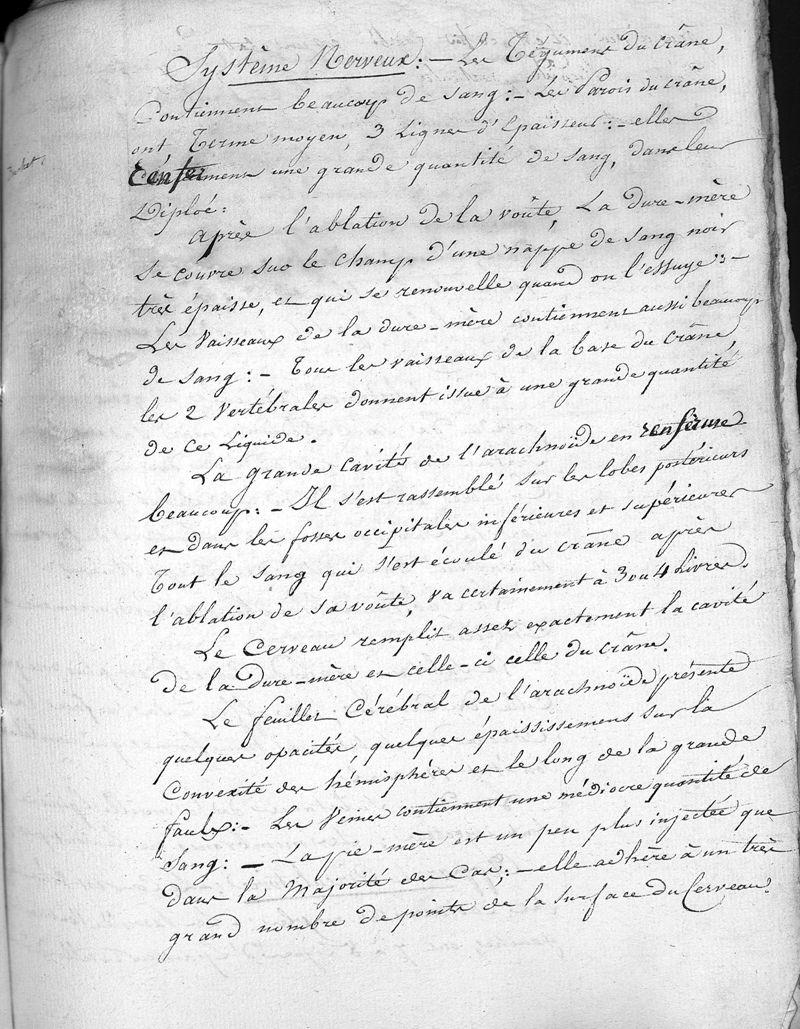 Système Nerveux: — Les Tégumens du Crâne,
Contiennent beaucoup de Sang: — Les Parois du crâne,
ont, Terme moyen, 3 Lignes d'Epaisseur: — elles
renferment une grande quantité de Sang, dans leur
Diploé:
Après l'ablation de la voûte, La dure-mère
se couvre sur le champ d'une nappe de sang noir
très épaisse, et qui se renouvelle quand on l'essuye: —
Les Vaisseaux de la dure-mère contiennent aussi beaucoup
de Sang: — Tous les vaisseaux de la base du Crâne,
les 2 Vertébrales donnent issue à une grande quantité
de ce Liquide.
La grande cavité de l'arachnoïde en renferme
beaucoup: — Il s'est rassemblé sur les lobes postérieurs
et dans les fosses occipitales inférieures et supérieures
Tout le Sang qui s'est écoulé du crâne après
l'ablation de sa voûte, va certainement à 3 ou 4 Livres.
Le Cerveau remplit assez exactement la cavité
de la Dure-mère et celle-ci celle du crâne.
Le feuillet Cérébral de l'arachnoïde présente
quelques opacités, quelques épaississemens sur la
Convexité des hémisphères et le long de la grande
faulx: — Les Veines contiennent une médiocre quantité de
Sang: — La pie-mère est un peu plus injectée que
dans la Majorité des Cas; — elle adhère à un très
grand nombre de points de la surface du Cerveau.